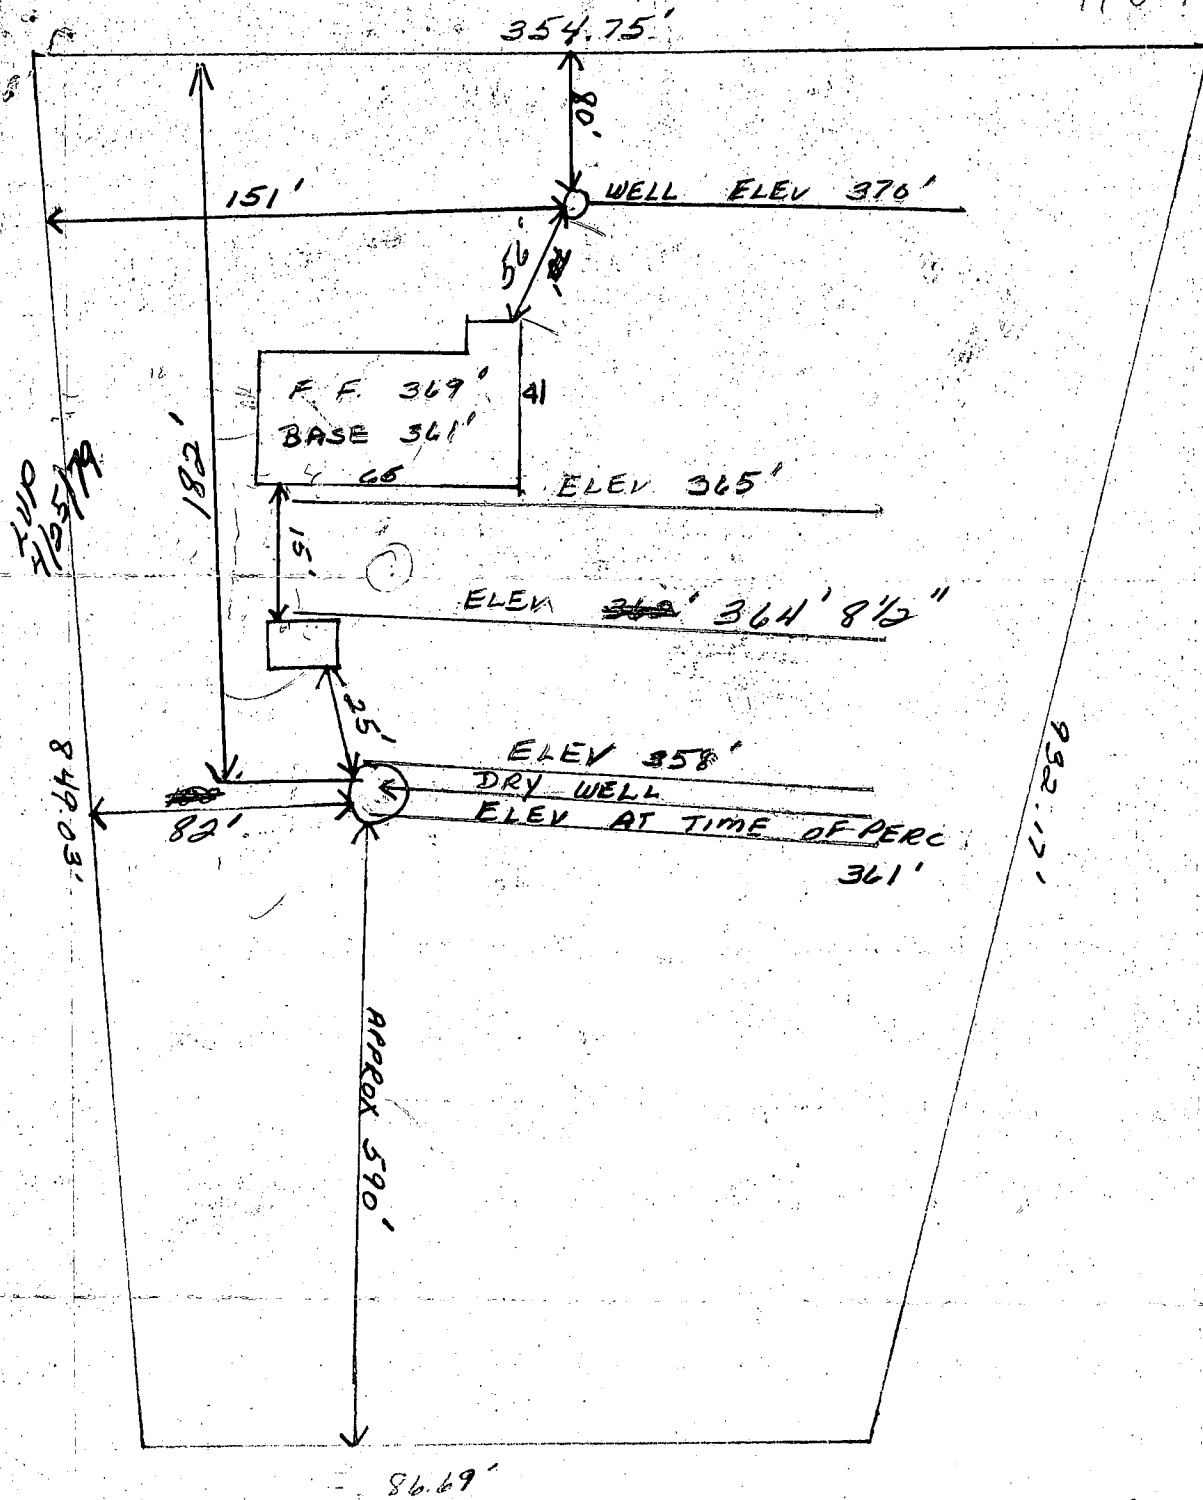 354.75'
80'
151'
WELL ELEV 370'
F F. 369'
41
BASE 361'
182'
66
ELEV 365'
4/25/79
15'
ELEV 364' 8 1/2"
25'
ELEV 358'
DRY WELL
82'
ELEV AT TIME OF PERC
361'
849.03'
932.17'
APPROX 590'
86.69'